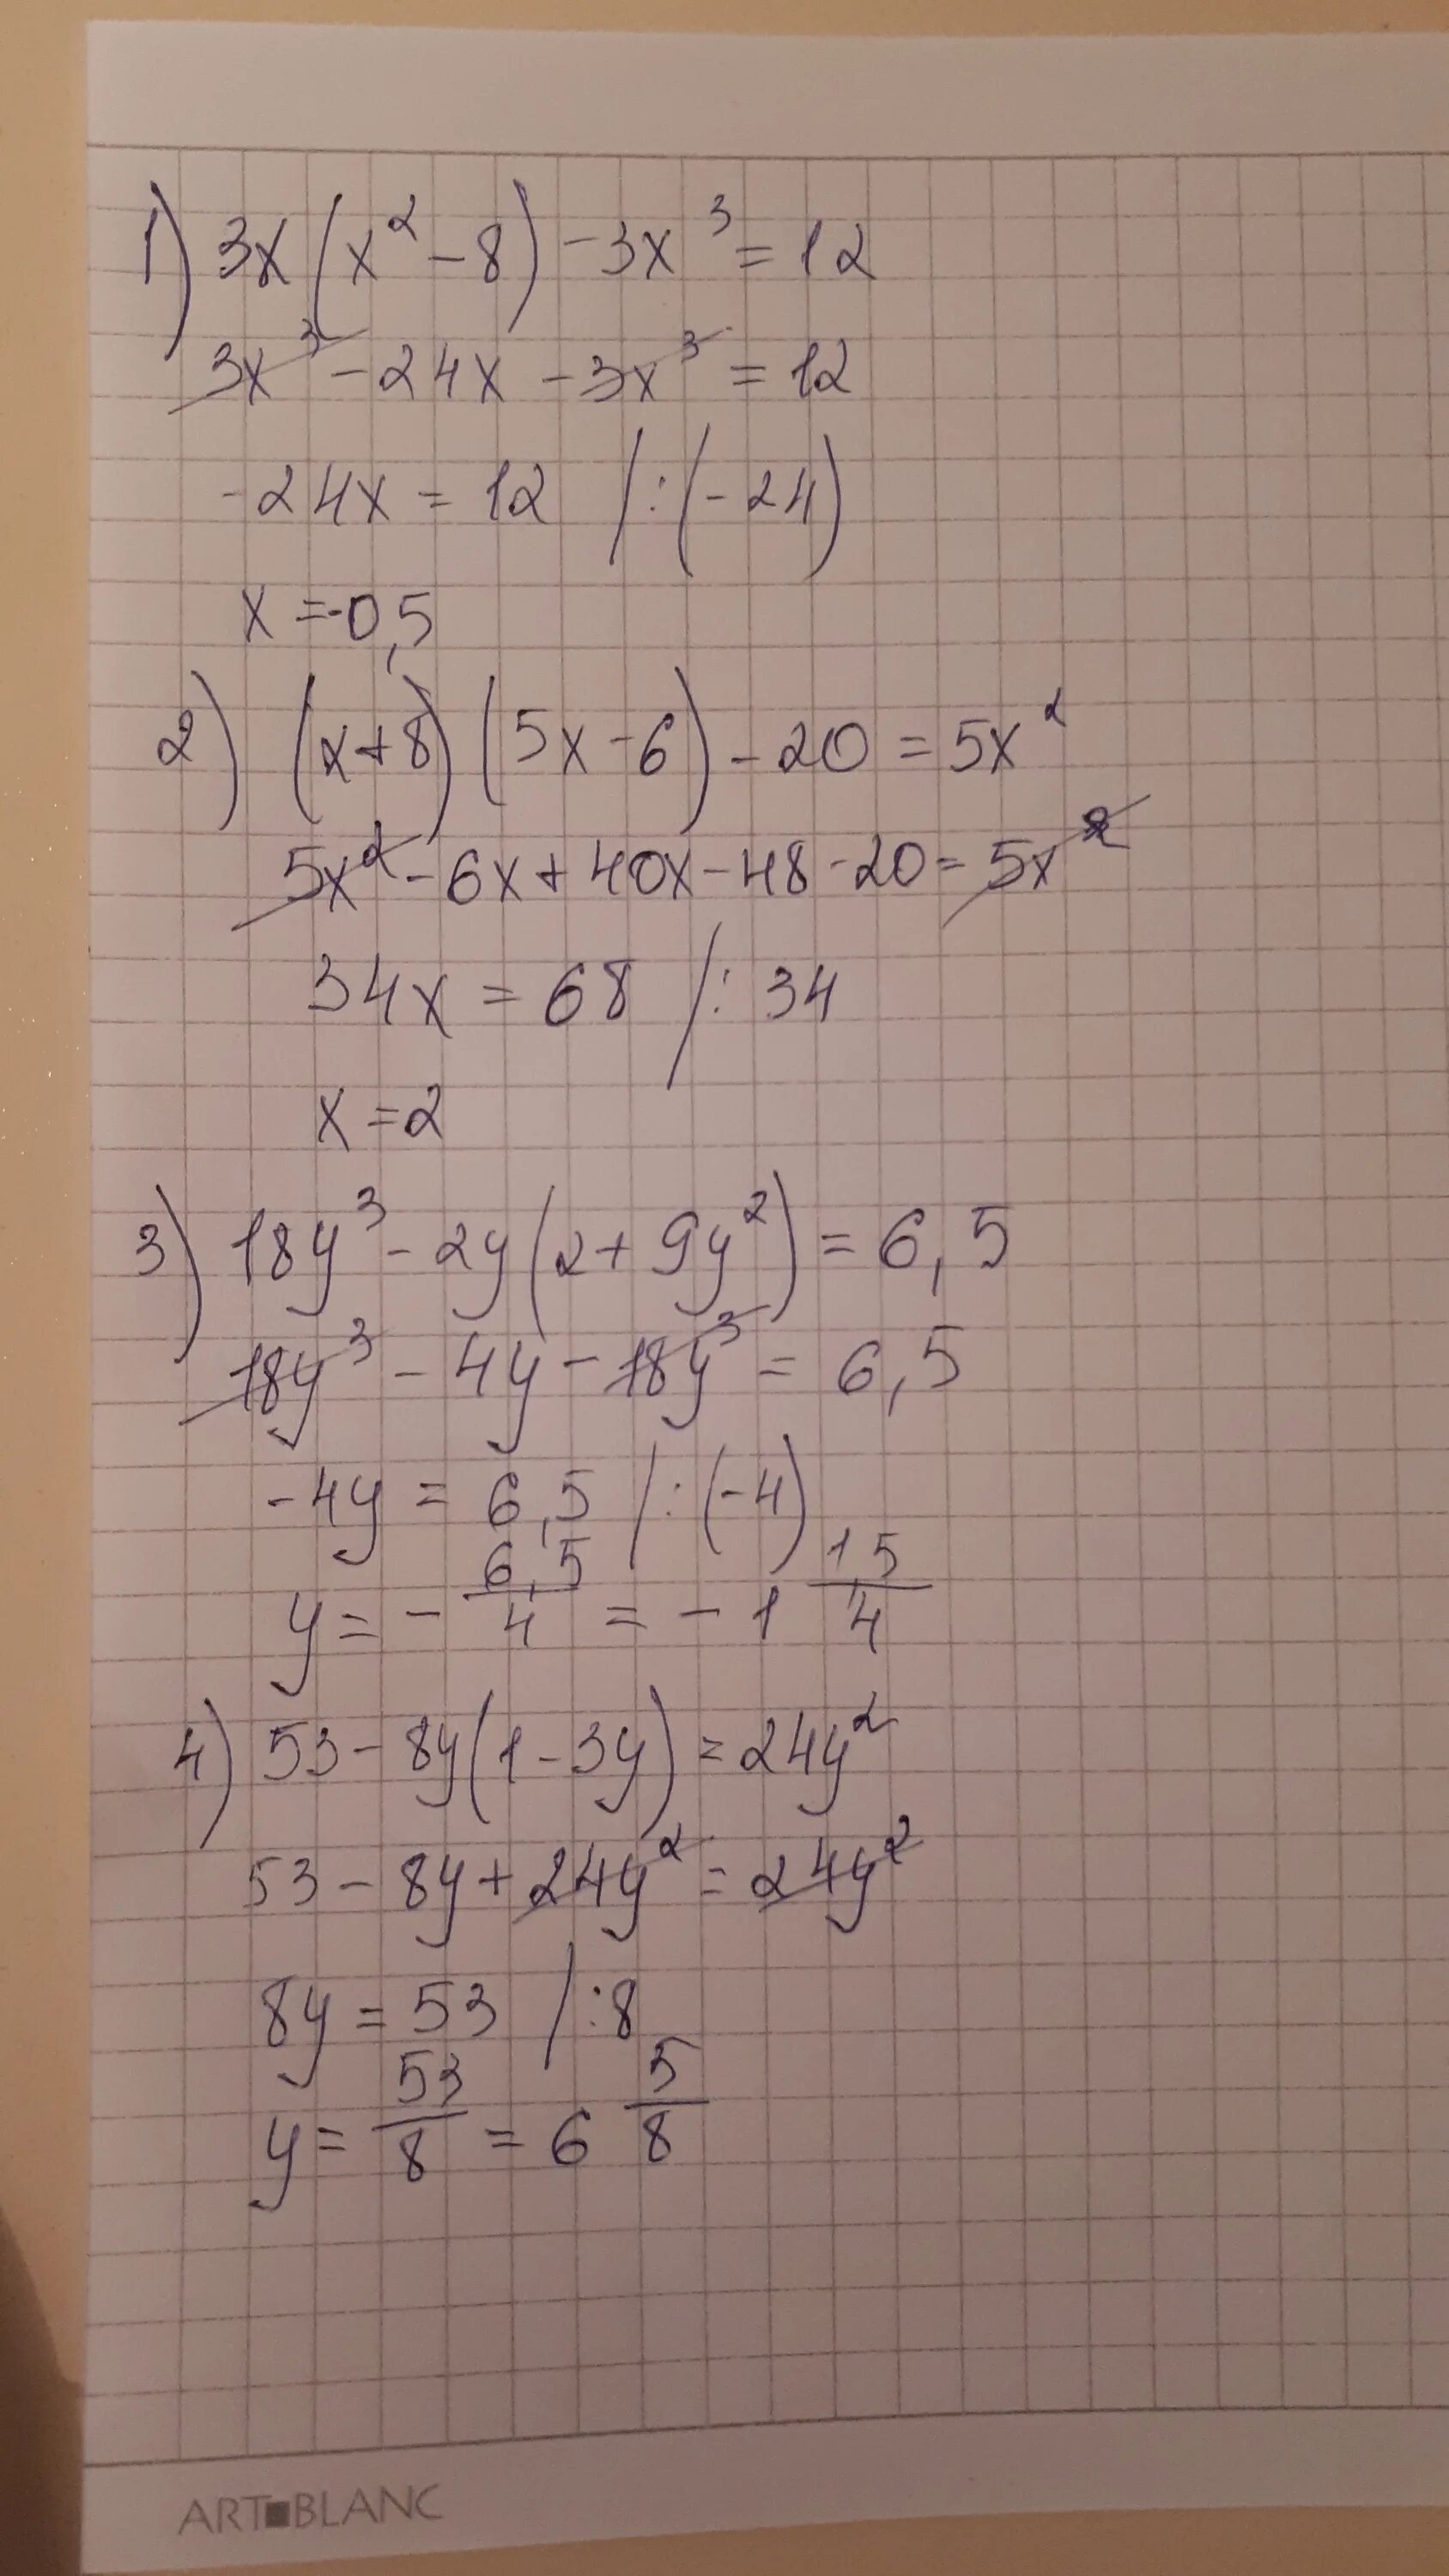 1) 3x(x² - 8) - 3x³ = 12
3x³ - 24x - 3x³ = 12
-24x = 12 /:(-24)
x = -0,5
2) (x+8)(5x-6) - 20 = 5x²
5x² - 6x + 40x - 48 - 20 = 5x²
34x = 68 /: 34
x = 2
3) 18y³ - 2y(2 + 9y²) = 6,5
18y³ - 4y - 18y³ = 6,5
-4y = 6,5 /:(-4)
y = - 6,5/4 = - 1 1,5/4
4) 53 - 8y(1 - 3y) = 24y²
53 - 8y + 24y² = 24y²
8y = 53 /:8
y = 53/8 = 6 5/8
ART■BLANC